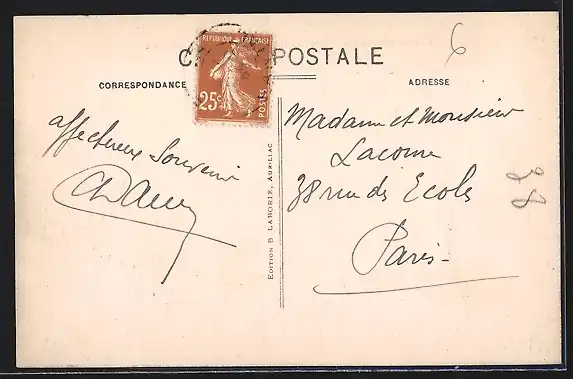 CARTE POSTALE
RÉPUBLIQUE FRANÇAISE
25c
POSTES
CORRESPONDANCE
ADRESSE
6
affectueux Souvenir
Madame et Monsieur
Lacome
38 rue des Ecoles
Paris
38
EDITION B. LABORIE, AURILLAC